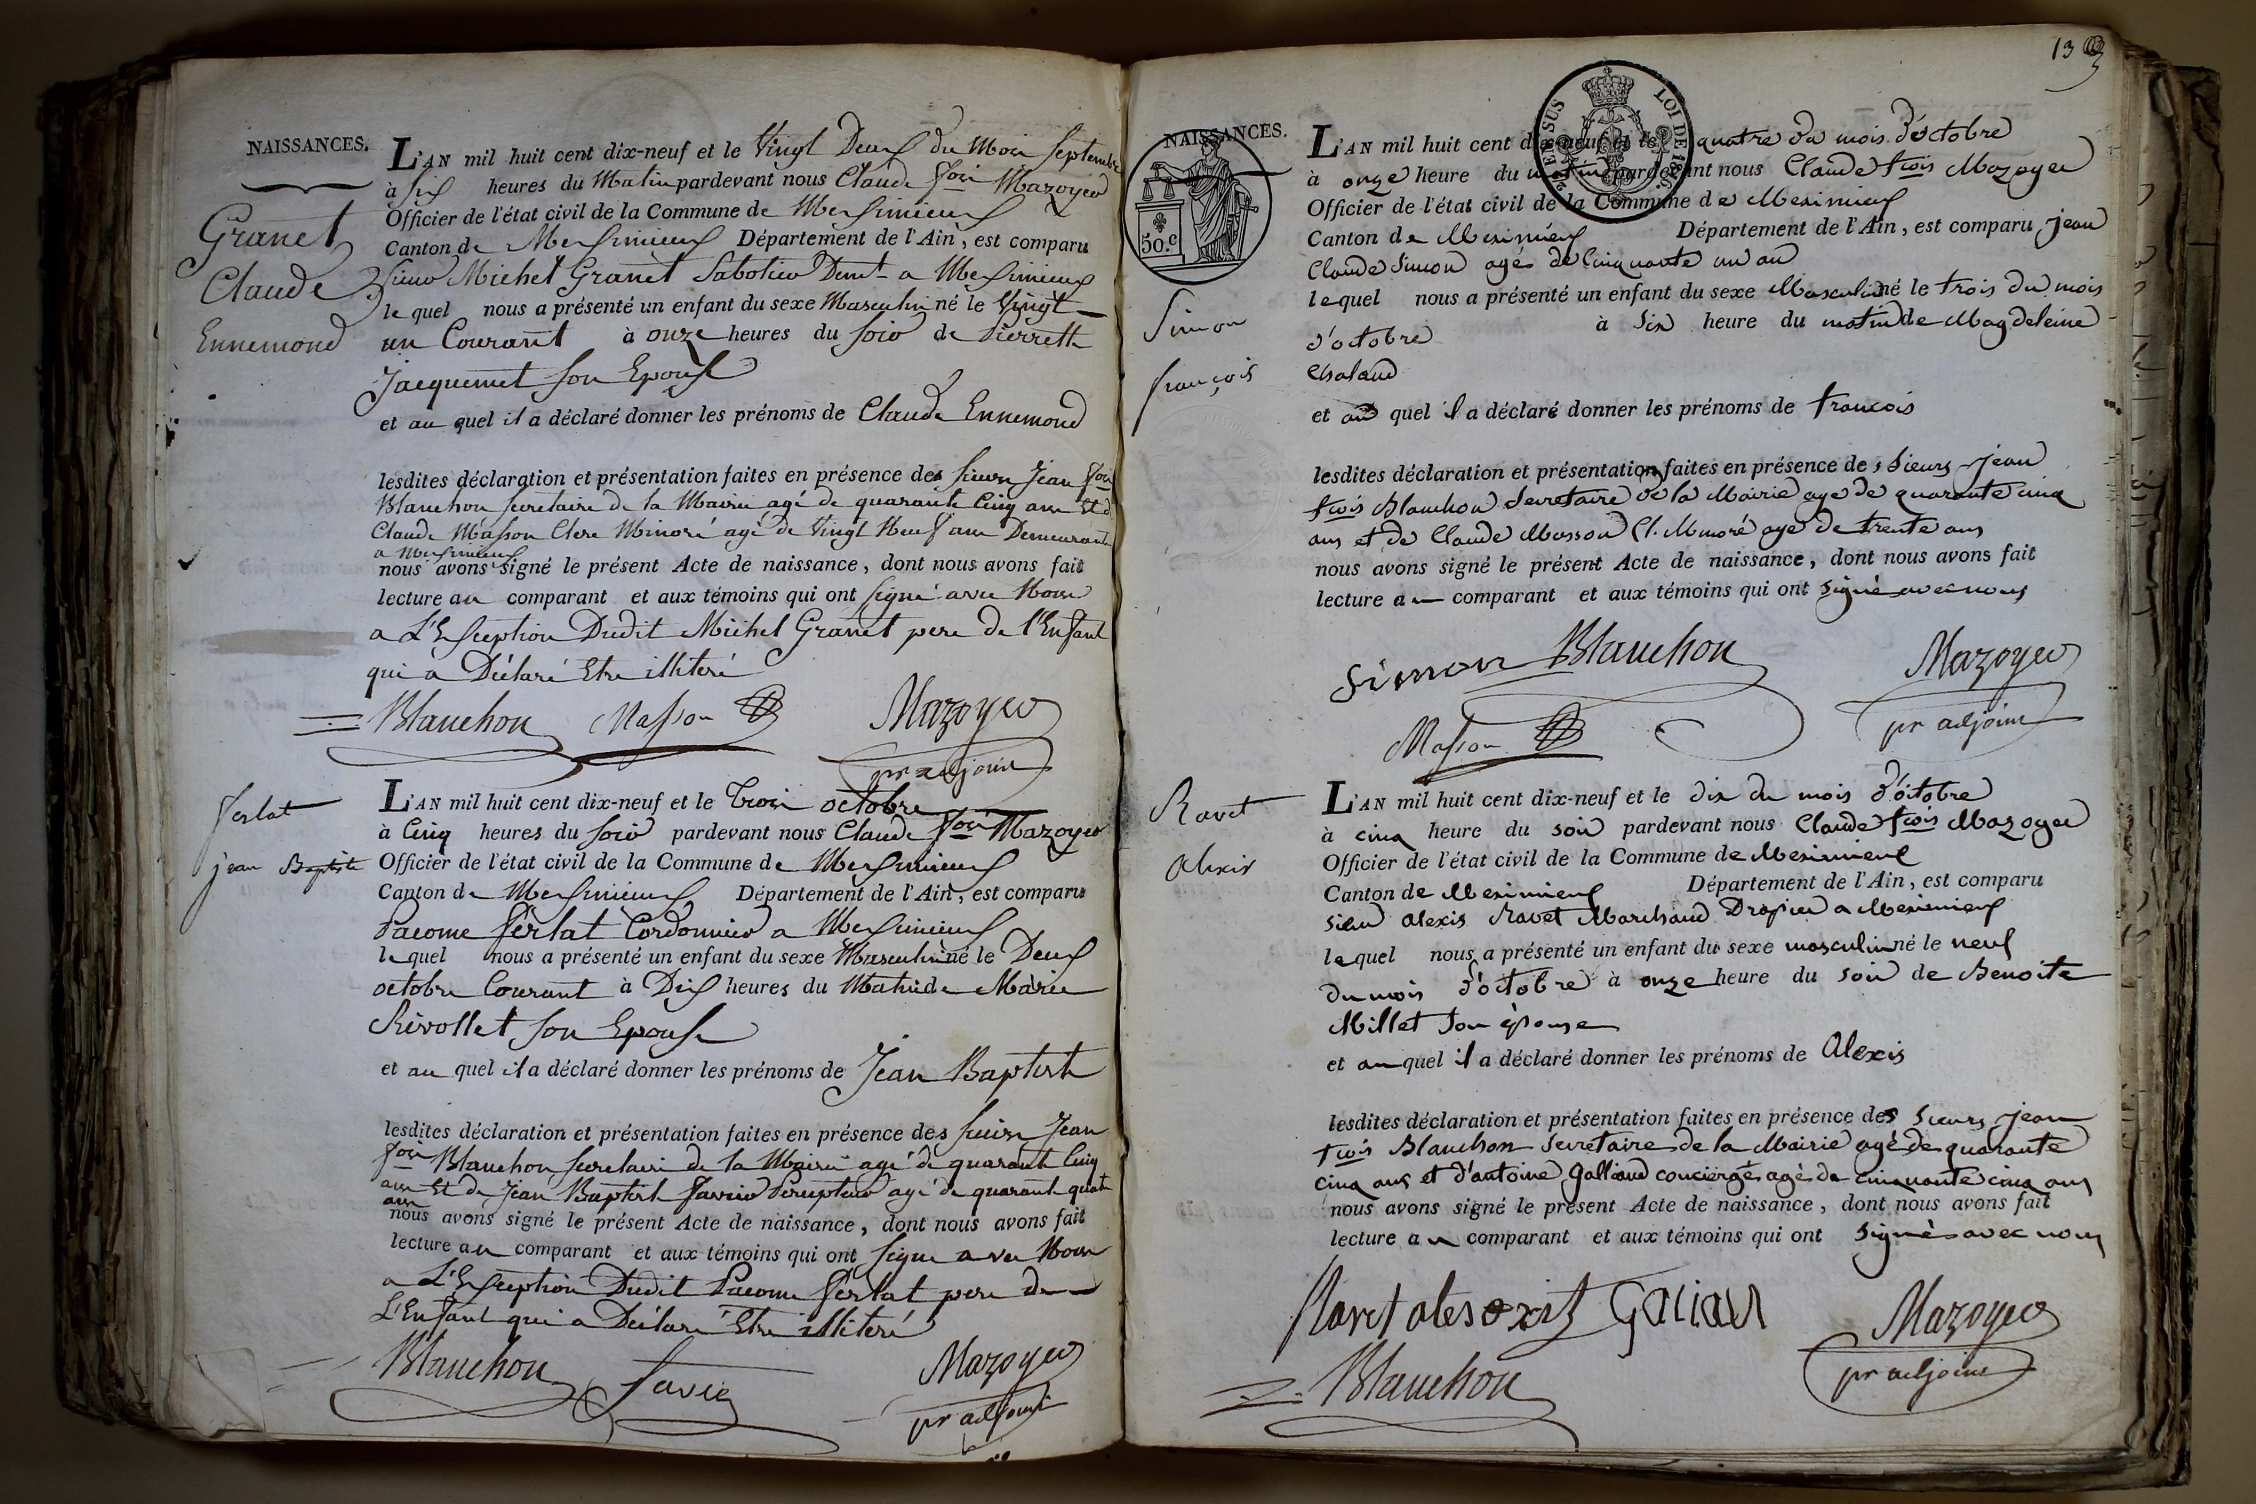 NAISSANCES.
Granet
Claude
Ennemond
L'AN mil huit cent dix-neuf et le Vingt Deux du Mois Septembre
à Six heures du Matin pardevant nous Claude fois Mazoyer
Officier de l'état civil de la Commune de Meximieux
Canton de Meximieux Département de l'Ain, est comparu
Sieur Michel Granet Sabotier Demt a Meximieux
le quel nous a présenté un enfant du sexe Masculin né le Vingt
un Courant à onze heures du soir de Pierrette
Jacquemet son Epouse
et au quel il a déclaré donner les prénoms de Claude Ennemond
lesdites déclaration et présentation faites en présence des sieurs Jean fois
Blanchon secretaire de la Mairie agé de quarante Cinq ans Et d
Claude Masson Clerc Minoré agé de Vingt Neuf ans Demeurants
a Meximieux
nous avons signé le présent Acte de naissance, dont nous avons fait
lecture au comparant et aux témoins qui ont signé avec Nous
a L'Exception Dudit Michel Granet pere de l'Enfant
qui a Déclaré Etre illiteré
Blanchon Masson Mazoyer
pr adjoint
ferlat
jean Baptiste
L'AN mil huit cent dix-neuf et le Trois octobre
à Cinq heures du soir pardevant nous Claude fois Mazoyer
Officier de l'état civil de la Commune de Meximieux
Canton de Meximieux Département de l'Ain, est comparu
Pacome ferlat Cordonnier a Meximieux
le quel nous a présenté un enfant du sexe Masculin né le Deux
octobre Courant à Dix heures du Matin de Marie
Rivollet son Epouse
et au quel il a déclaré donner les prénoms de Jean Baptiste
lesdites déclaration et présentation faites en présence des sieurs Jean
fois Blanchon secretaire de la Mairie agé de quarante Cinq
ans Et de Jean Baptiste favier Percepteur agé de quarante quatre
ans
nous avons signé le présent Acte de naissance, dont nous avons fait
lecture au comparant et aux témoins qui ont signé avec Nous
a L'Exception Dudit Pacome ferlat pere de
L'Enfant qui a Déclaré Etre illiteré
Blanchon favier Mazoyer
pr adjoint
13
NAISSANCES.
LOI DE 1816.
50.c
Simon
françois
L'AN mil huit cent dix-neuf et le quatre du mois d'octobre
à onze heure du matin pardevant nous Claude fcois Mazoyer
Officier de l'état civil de la Commune de Meximieux
Canton de Meximieux Département de l'Ain, est comparu Jean
Claude Simon agés de Cinquante un an
lequel nous a présenté un enfant du sexe Masculin né le trois du mois
d'octobre à six heure du matin de Magdeleine
Chaland
et au quel il a déclaré donner les prénoms de francois
lesdites déclaration et présentation faites en présence de s sieurs Jean
fcois Blanchon Secretaire de la Mairie age de quarante cinq
ans et de Claude Masson Cl. Minoré age de trente ans
nous avons signé le présent Acte de naissance, dont nous avons fait
lecture au comparant et aux témoins qui ont signé avec nous
Simon Blanchon Mazoyer
Masson pr adjoint
Ravet
Alexis
L'AN mil huit cent dix-neuf et le dix du mois d'octobre
à cinq heure du soir pardevant nous Claude fcois Mazoyer
Officier de l'état civil de la Commune de Meximieux
Canton de Meximieux Département de l'Ain, est comparu
sieur alexis Ravet Marchand Drapier a Meximieux
lequel nous a présenté un enfant du sexe masculin né le neuf
du mois d'octobre à onze heure du soir de Benoite
Millet son épouse
et au quel il a déclaré donner les prénoms de Alexis
lesdites déclaration et présentation faites en présence des sieurs Jean
fcois Blanchon Secretaire de la Mairie agé de quarante
cinq ans et d'antoine Galliand concierge agés de cinquante cinq ans
nous avons signé le présent Acte de naissance, dont nous avons fait
lecture au comparant et aux témoins qui ont signés avec nous
Mazoyer
Blanchon pr adjoint